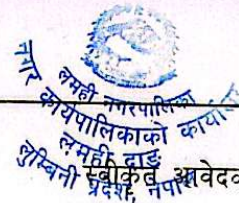 लमही नगरपालिका
नगर कार्यपालिकाको कार्यालय
लमही, दाङ
लुम्बिनी प्रदेश, नेपाल
स्वीकृत